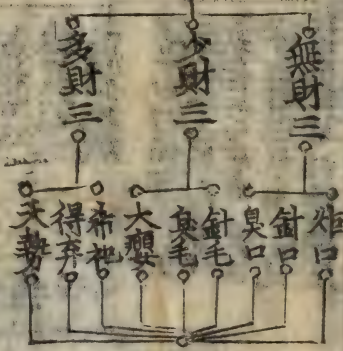 無財三
少財三
多財三
炬口
針口
臭口
針毛
臭毛
大癭
希祀
得弃
大勢